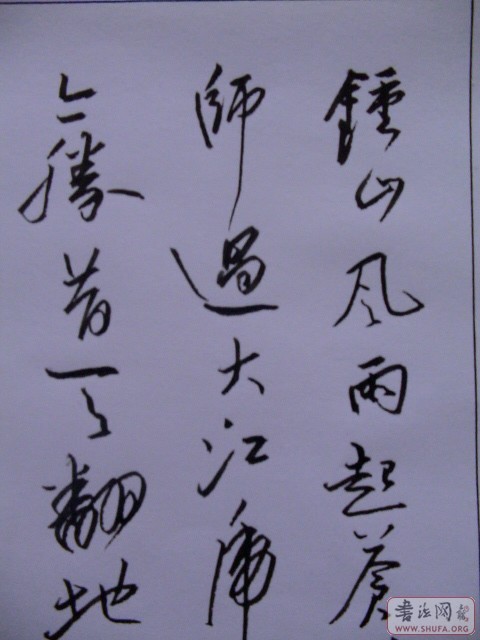 鍾山风雨起蒼
師過大江虎
今勝昔天翻地
書法网
WWW.SHUFA.ORG